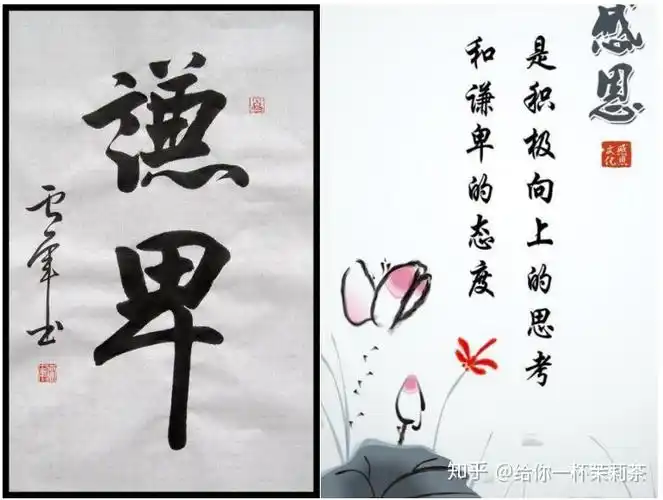 謙
卑
感恩
感恩
文化
是积极向上的思考
和谦卑的态度
知乎 @给你一杯茉莉茶